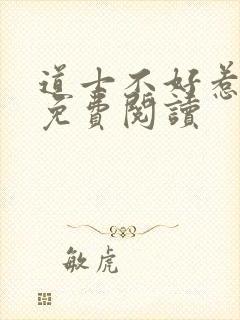 道士不好惹
免費閱讀
敏虎